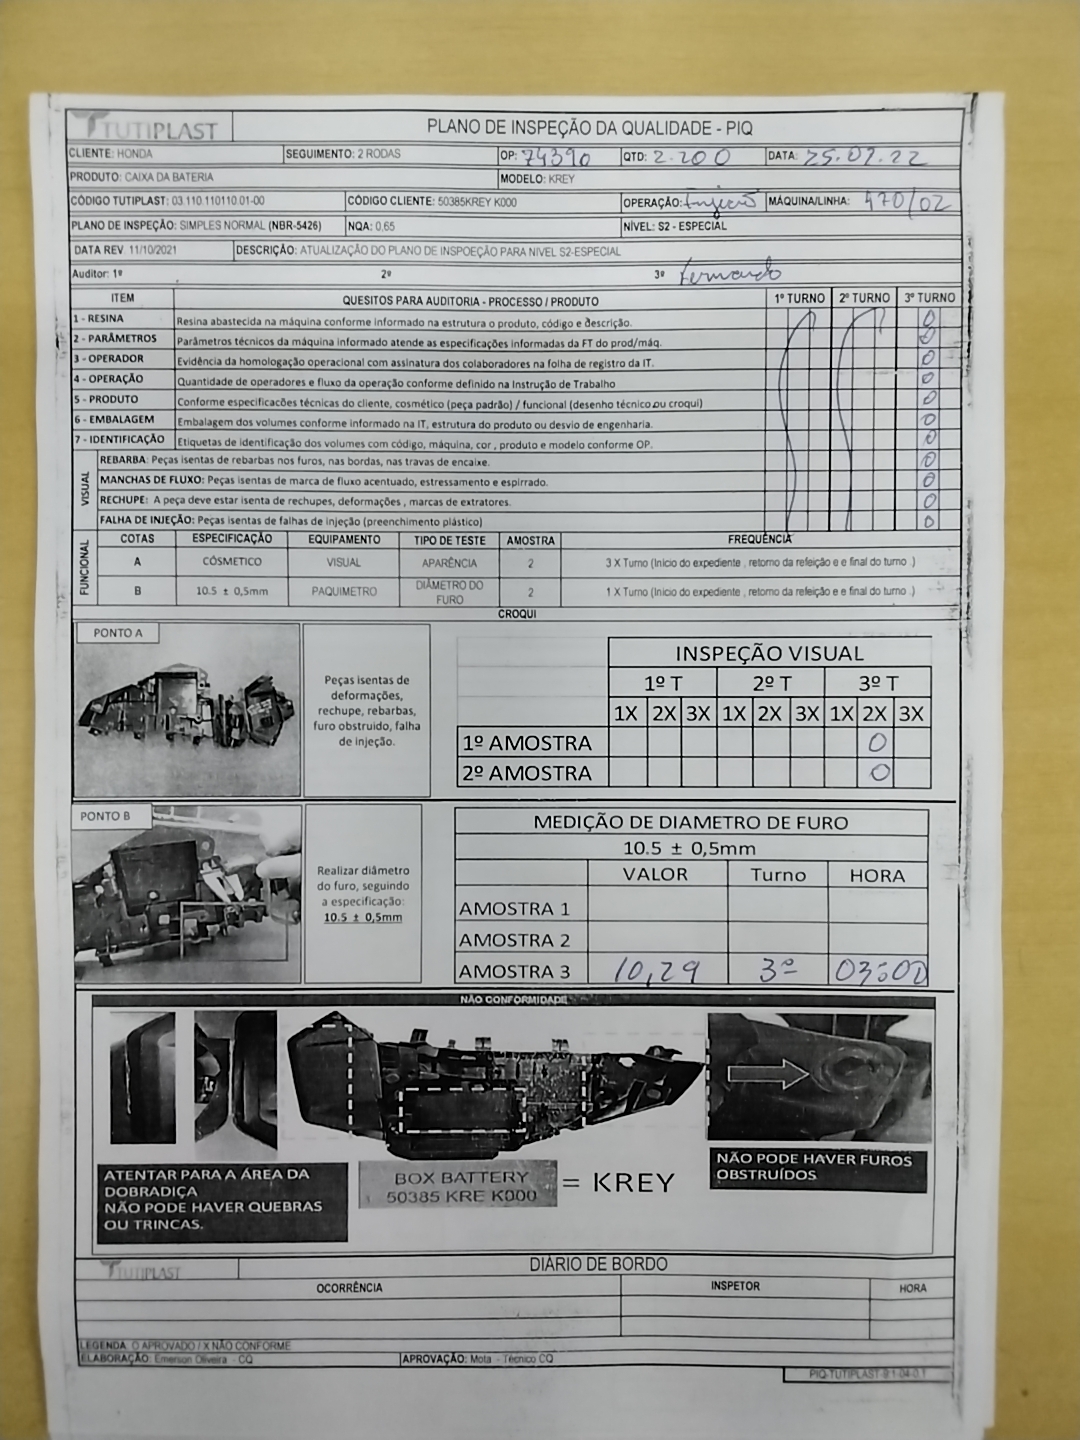 TUTIPLAST PLANO DE INSPEÇÃO DA QUALIDADE - PIQ
CLIENTE: HONDA SEGUIMENTO: 2 RODAS OP: 74390 QTD: 2.200 DATA: 25.07.22
PRODUTO: CAIXA DA BATERIA MODELO: KREY
CÓDIGO TUTIPLAST: 03.110.110110.01-00 CÓDIGO CLIENTE: 50385KREY K000 OPERAÇÃO: Injeção MÁQUINA/LINHA: 470/02
PLANO DE INSPEÇÃO: SIMPLES NORMAL (NBR-5426) NQA: 0,65 NÍVEL: S2 - ESPECIAL
DATA REV 11/10/2021 DESCRIÇÃO: ATUALIZAÇÃO DO PLANO DE INSPOEÇÃO PARA NIVEL S2-ESPECIAL
Auditor: 1º 2º 3º Fernando
ITEM QUESITOS PARA AUDITORIA - PROCESSO / PRODUTO 1º TURNO 2º TURNO 3º TURNO
1 - RESINA Resina abastecida na máquina conforme informado na estrutura o produto, código e descrição. O
2 - PARÂMETROS Parâmetros técnicos da máquina informado atende as especificações informadas da FT do prod/máq. O
3 - OPERADOR Evidência da homologação operacional com assinatura dos colaboradores na folha de registro da IT. O
4 - OPERAÇÃO Quantidade de operadores e fluxo da operação conforme definido na Instrução de Trabalho O
5 - PRODUTO Conforme especificacões técnicas do cliente, cosmético (peça padrão) / functional (desenho técnico ou croqui) O
6 - EMBALAGEM Embalagem dos volumes conforme informado na IT, estrutura do produto ou desvio de engenharia. O
7 - IDENTIFICAÇÃO Etiquetas de identificação dos volumes com código, máquina, cor , produto e modelo conforme OP. O
VISUAL
REBARBA: Peças isentas de rebarbas nos furos, nas bordas, nas travas de encaixe. O
MANCHAS DE FLUXO: Peças isentas de marca de fluxo acentuado, estressamento e espirrado. O
RECHUPE: A peça deve estar isenta de rechupes, deformações , marcas de extratores. O
FALHA DE INJEÇÃO: Peças isentas de falhas de injeção (preenchimento plástico) O
FUNCIONAL
COTAS ESPECIFICAÇÃO EQUIPAMENTO TIPO DE TESTE AMOSTRA FREQUÊNCIA
A CÓSMETICO VISUAL APARÊNCIA 2 3 X Turno (Início do expediente , retorno da refeição e e final do turno .)
B 10.5 ± 0,5mm PAQUIMETRO DIÂMETRO DO FURO 2 1 X Turno (Início do expediente , retorno da refeição e e final do turno .)
CROQUI
PONTO A
Peças isentas de
deformações,
rechupe, rebarbas,
furo obstruido, falha
de injeção.
INSPEÇÃO VISUAL
1º T 2º T 3º T
1X 2X 3X 1X 2X 3X 1X 2X 3X
1º AMOSTRA O
2º AMOSTRA O
PONTO B
Realizar diâmetro
do furo, seguindo
a especificação:
10.5 ± 0,5mm
MEDIÇÃO DE DIAMETRO DE FURO
10.5 ± 0,5mm
VALOR Turno HORA
AMOSTRA 1
AMOSTRA 2
AMOSTRA 3 10,29 3º 03:00
NÃO CONFORMIDADE
ATENTAR PARA A ÁREA DA
DOBRADIÇA
NÃO PODE HAVER QUEBRAS
OU TRINCAS.
BOX BATTERY
50385 KRE K000
= KREY
NÃO PODE HAVER FUROS
OBSTRUÍDOS
TUTIPLAST DIÁRIO DE BORDO
OCORRÊNCIA INSPETOR HORA
LEGENDA O APROVADO / X NÃO CONFORME
ELABORAÇÃO: Emerson Oliveira - CQ APROVAÇÃO: Mota - Técnico CQ
PIQ-TUTIPLAST-9.1-04-0.1